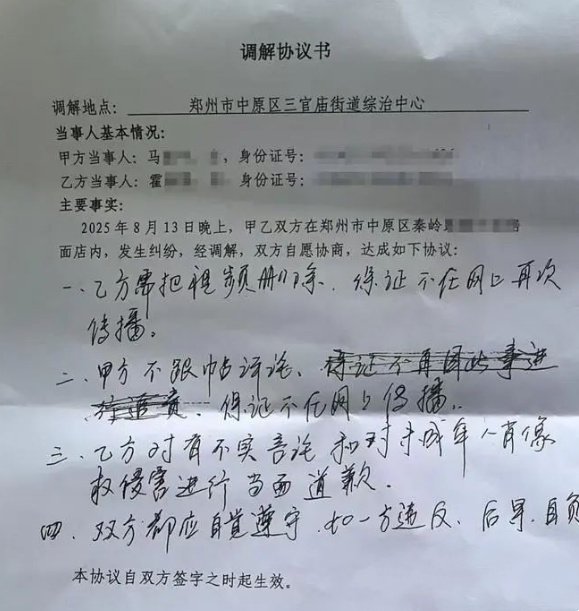 调解协议书
调解地点: 郑州市中原区三官庙街道综治中心
当事人基本情况:
甲方当事人: 马 , 身份证号:
乙方当事人: 霍 , 身份证号:
主要事实:
2025年8月13日晚上,甲乙双方在郑州市中原区秦岭
面店内,发生纠纷,经调解,双方自愿协商,达成如下协议:
一、乙方需把视频删除.保证不在网上再次
传播。
二、甲方不跟帖评论、保证不再因此事进
行追责.保证不在网上传播。
三、乙方对有不实言论和对未成年人肖像
权侵害进行当面道歉.
四、双方都应自觉遵守.如一方违反、后果自负
本协议自双方签字之时起生效。